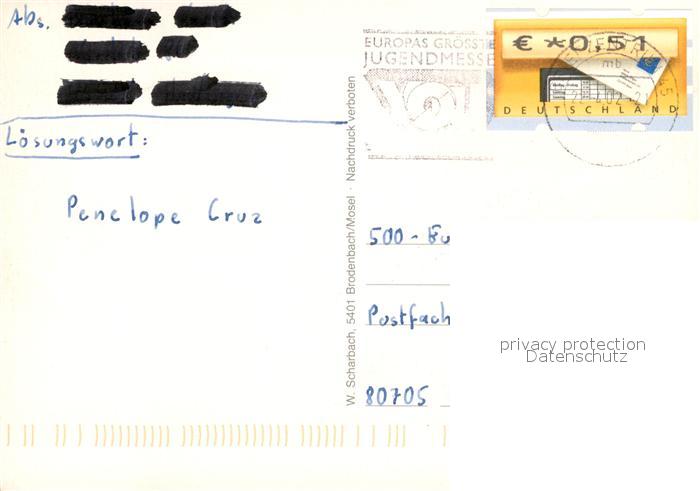 Abs.
Lösungswort:
Penelope Cruz
W. Scharbach, 5401 Brodenbach/Mosel · Nachdruck verboten
EUROPAS GRÖSSTE
JUGENDMESSE
€ *0,51
mb
DEUTSCHLAND
500 - Eu
Postfach
80705
privacy protection
Datenschutz